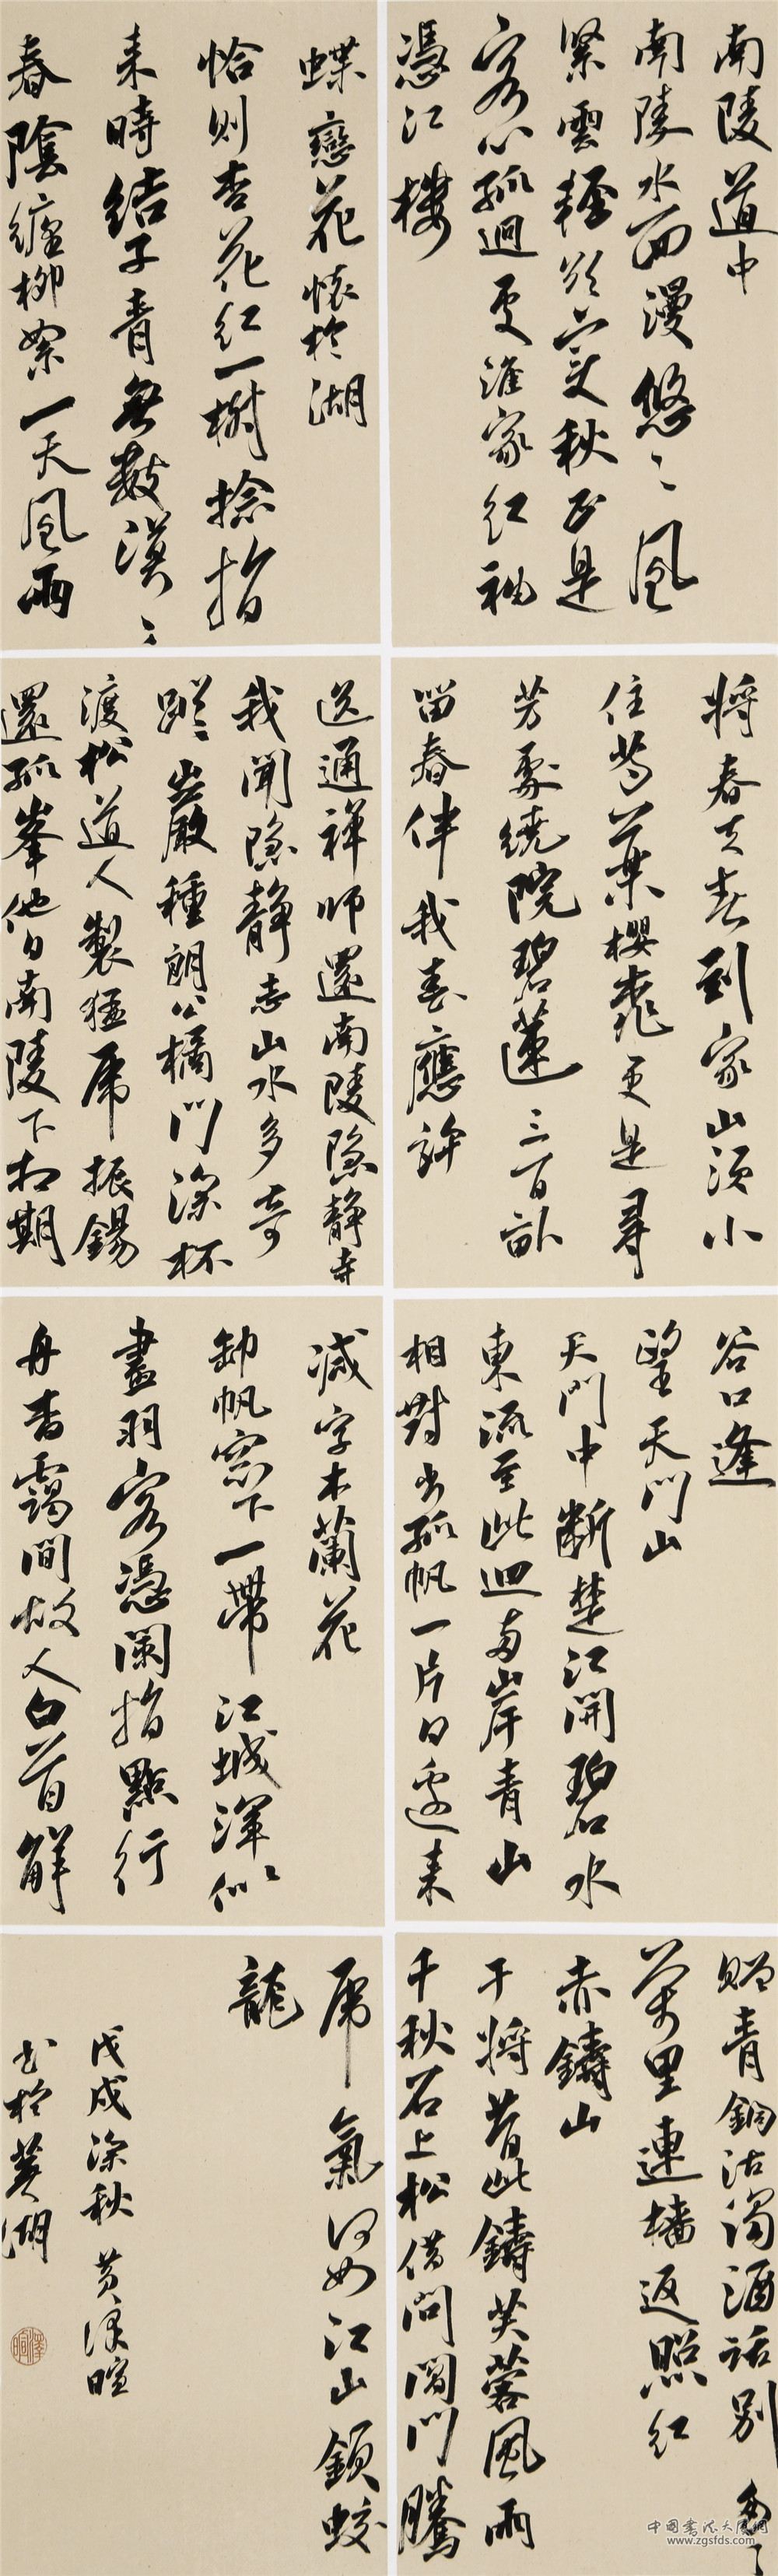 南陵道中
南陵水面漫悠〻風
緊雲輕欲變秋正是
客心孤迥處誰家紅袖
憑江樓
蝶戀花懷於湖
恰則杏花紅一樹撚指
來時結子青無數漠〻
春陰纏柳絮一天風雨
將春去春到家山須小
住芍藥櫻桃更是尋
芳處繞院碧蓮三百畝
留春伴我春應許
送通禪師還南陵隱靜寺
我聞隱靜寺山水多奇
蹤巖種朗公橘門深杯
渡松道人製猛虎振錫
還孤峯他日南陵下相期
谷口逢
望天門山
天門中斷楚江開碧水
東流至此迴兩岸青山
相對出孤帆一片日邊來
減字木蘭花
卸帆窓下一帶江城渾似
畫羽客憑闌指點行
舟杳靄間故人白首解
贈青銅沽濁酒話別匆〻
萬里連檣返照紅
赤鑄山
干將昔此鑄芙蓉風雨
千秋石上松借問閶門騰
虎氣何如江山鎖蛟
龍
戊戌深秋 黄澤暄
書於蕪湖
中国书法大展网
www.zgsfds.com